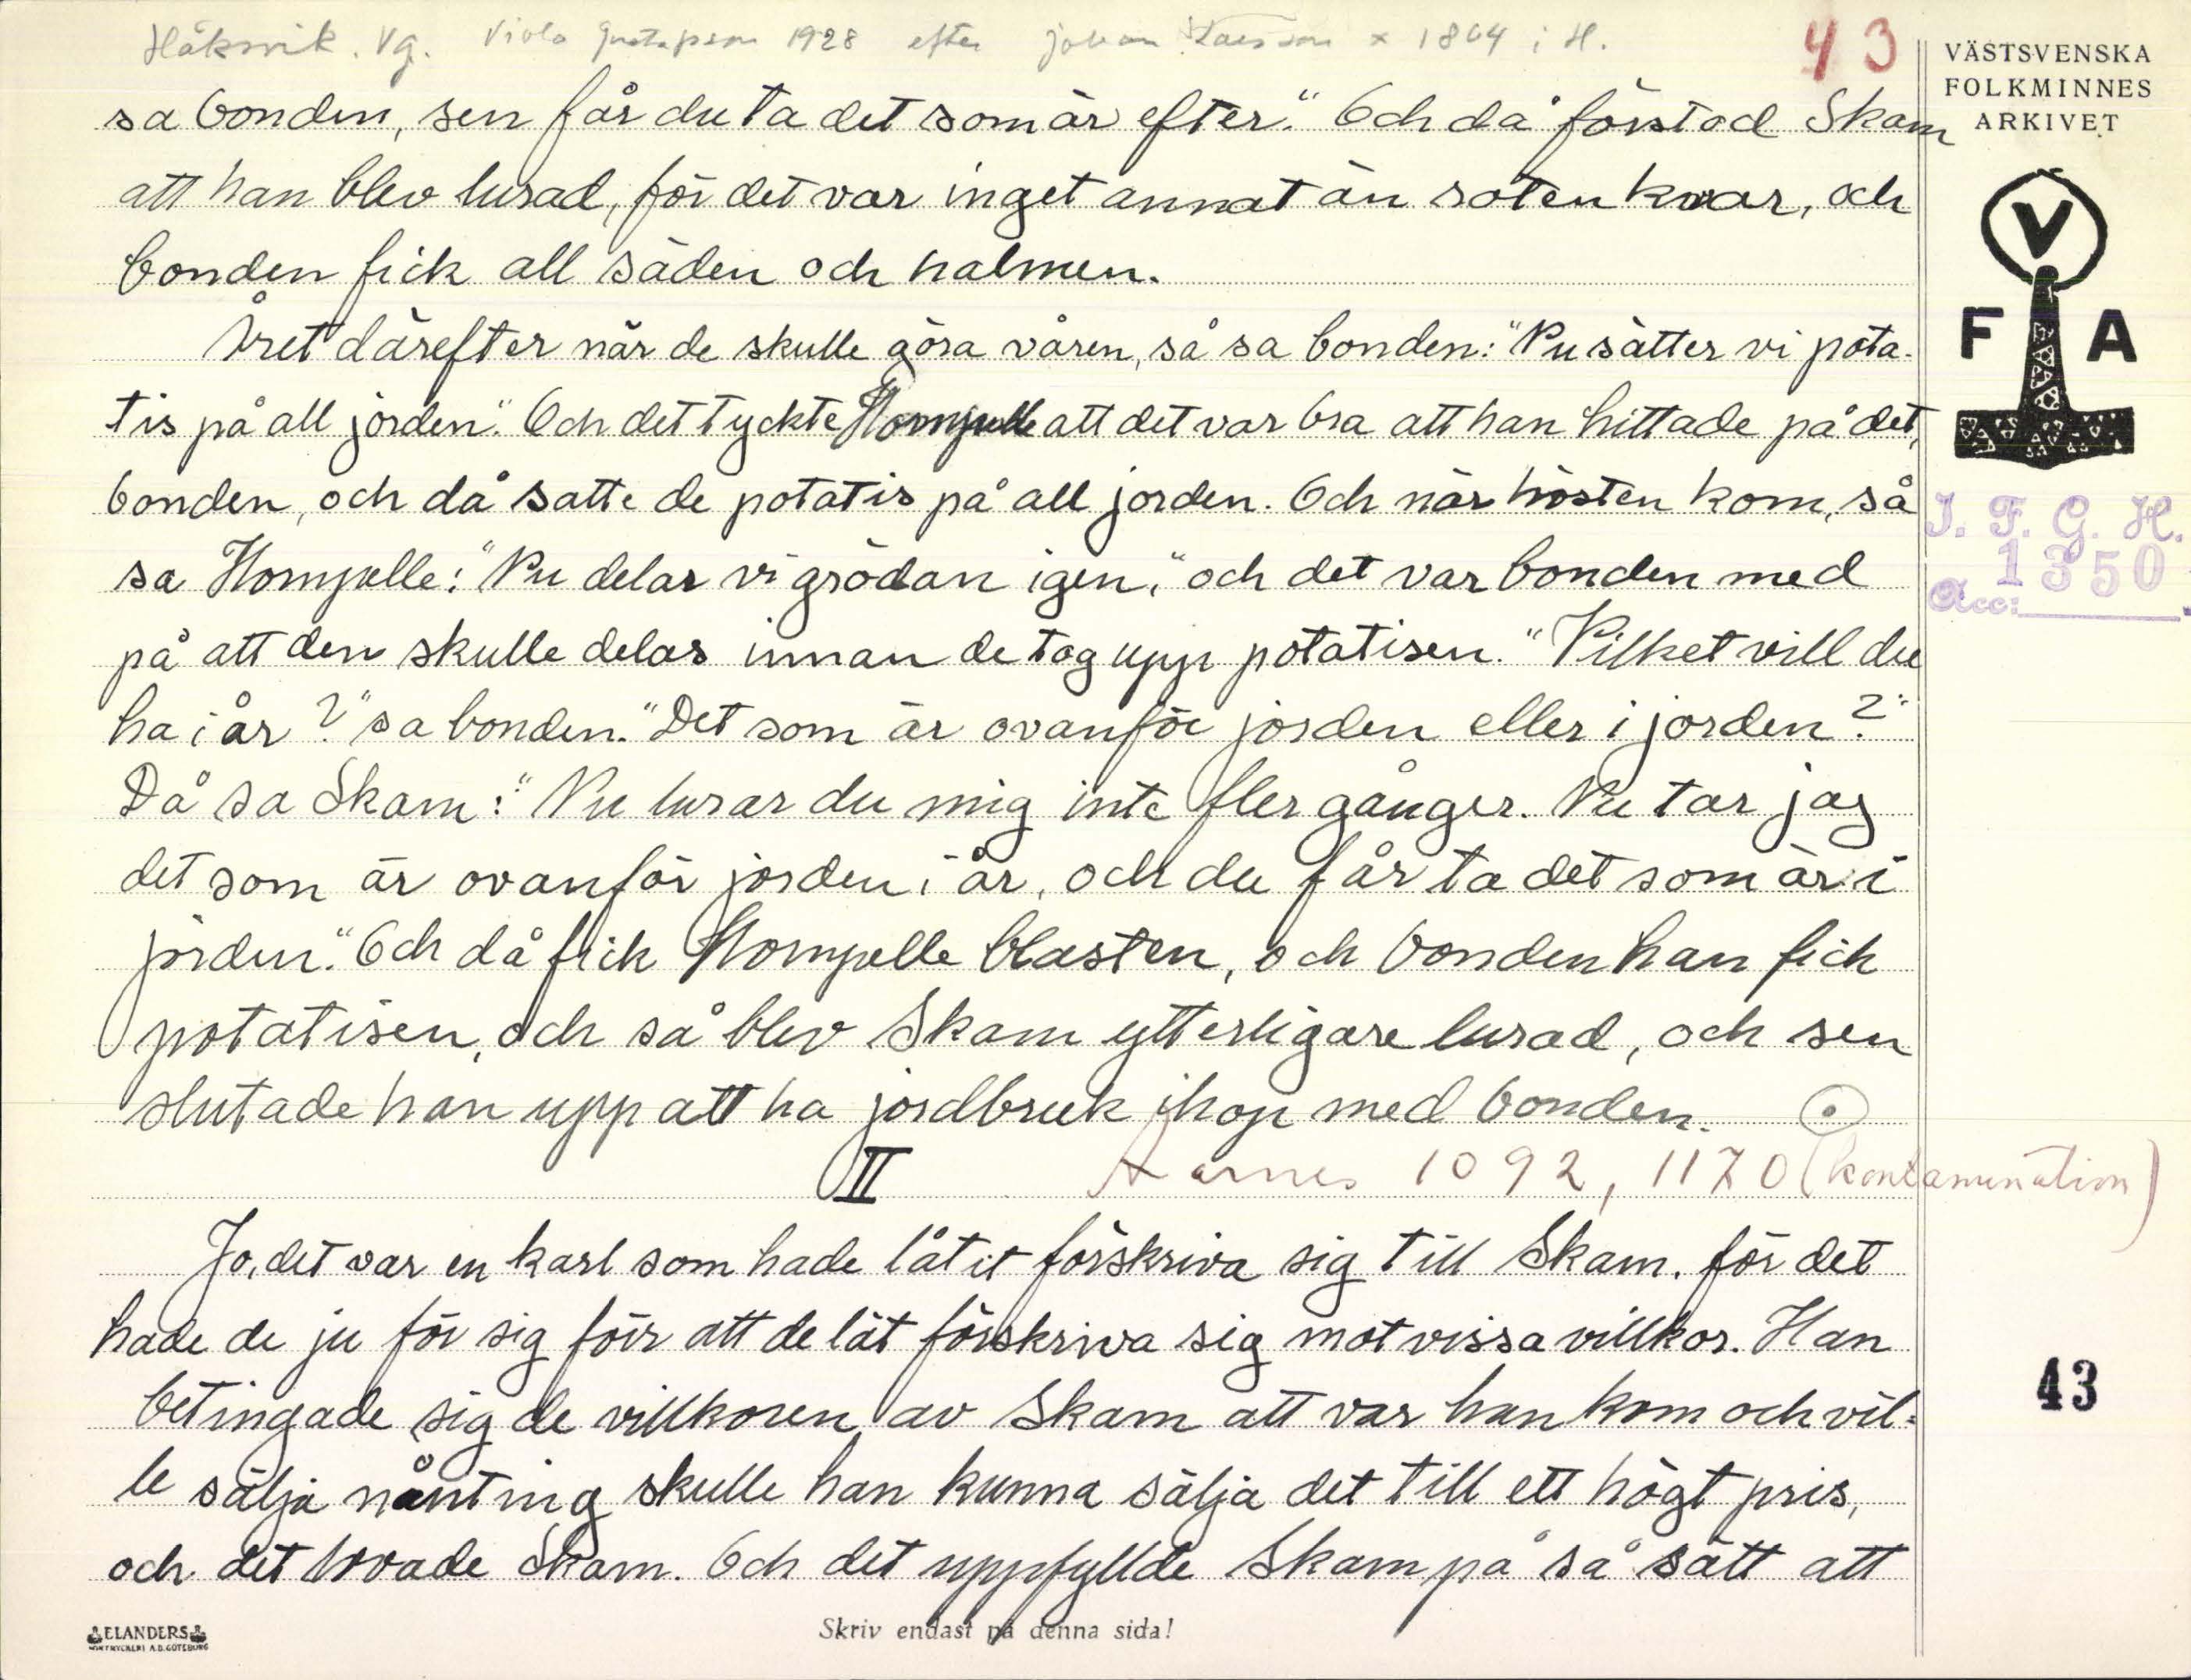 Håksvik. Vg. Viola Gustafsson 1928 efter Johan Larsson x 1864 i H.
43
VÄSTSVENSKA
FOLKMINNES
ARKIVET
sa bonden, sen får du ta det som är efter." Och då förstod Skam
att han blev lurad, för det var inget annat än roten kvar, och
bonden fick all säden och halmen.
Året därefter när de skulle göra våren, så sa bonden: "Nu sätter vi pota-
tis på all jorden." Och det tyckte Hornpelle att det var bra att han hittade på det,
bonden, och då satte de potatis på all jorden. Och när hösten kom, så
sa Hornpelle: "Nu delar vi grödan igen," och det var bonden med
på att den skulle delas innan de tog upp potatisen. "Vilket vill du
ha i år?" sa bonden. "Det som är ovanför jorden eller i jorden?"
Då sa Skam: "Nu lurar du mig inte fler gånger. Nu tar jag
det som är ovanför jorden i år, och du får ta det som är i
jorden." Och då fick Hornpelle blasten, och bonden han fick
potatisen, och så blev Skam ytterligare lurad, och sen
slutade han upp att ha jordbruk ihop med bonden.
II Aarnes 1092, 1170 (kontamination)
Jo, det var en karl som hade låtit förskriva sig till Skam. för det
hade de ju för sig förr att de lät förskriva sig mot vissa villkor. Han
betingade sig de villkoren av Skam att var han kom och vil=
le sälja nånting skulle han kunna sälja det till ett högt pris,
och det lovade Skam. Och det uppfyllde Skam på så sätt att
V
F A
I. F. G. H.
1350
Acc:
43
ELANDERS
Skriv endast på denna sida!